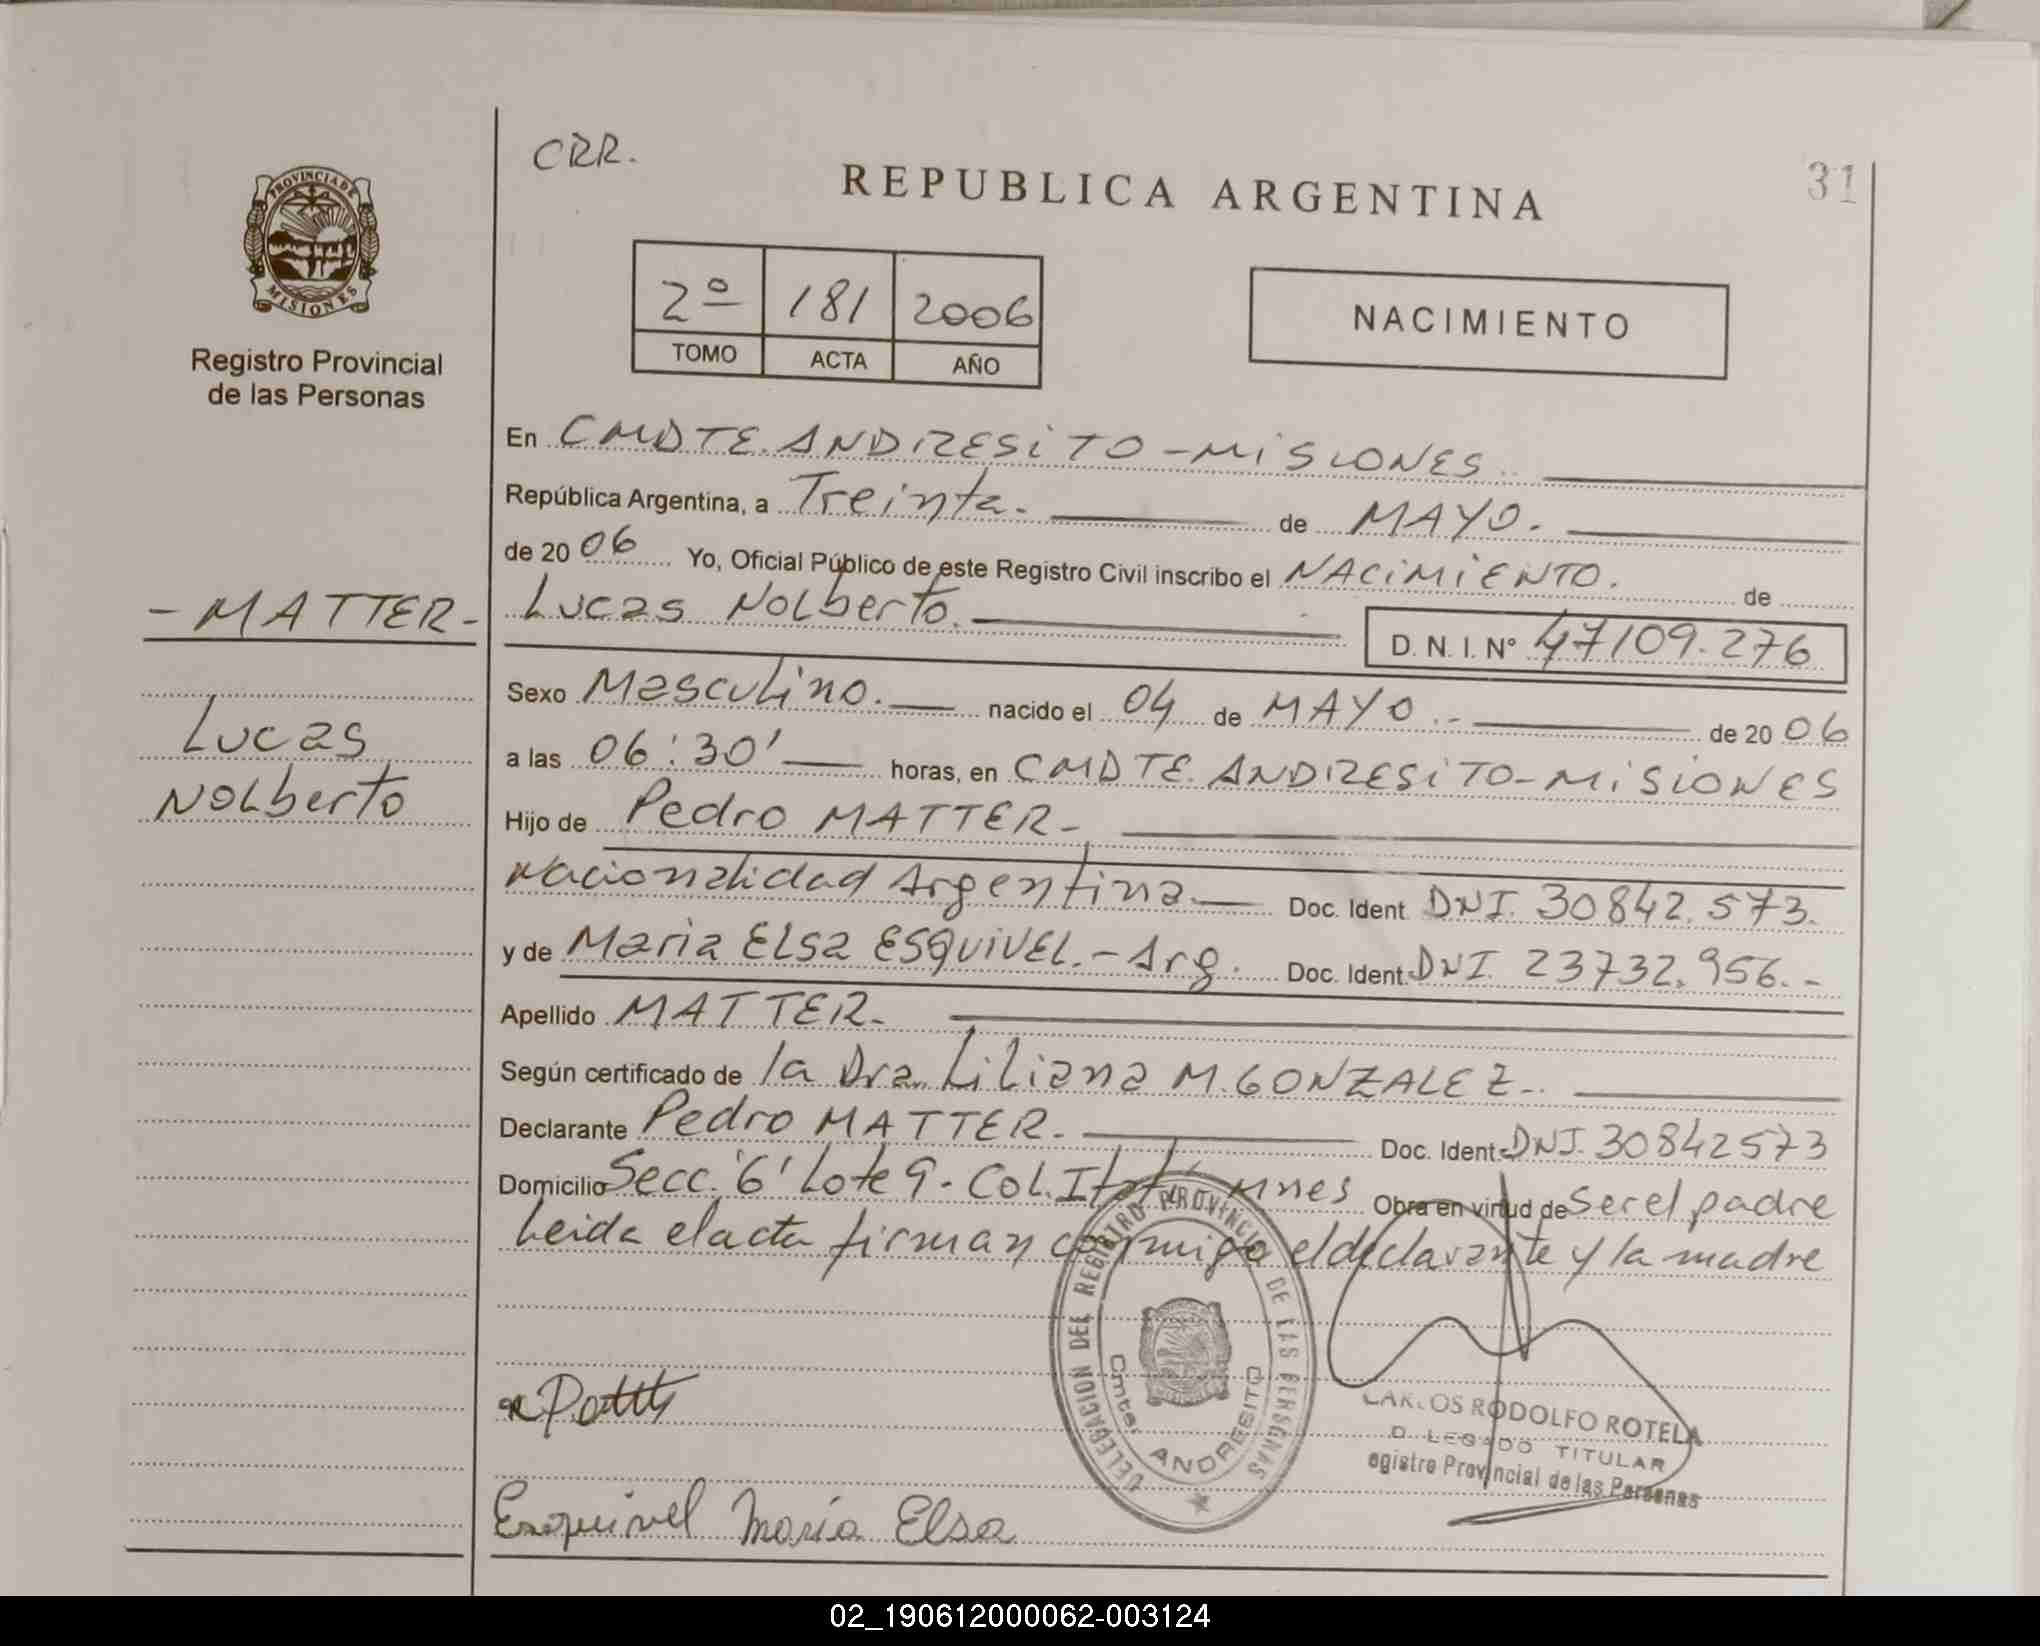 CRR.
REPUBLICA ARGENTINA
31
PROVINCIA DE
MISIONES
Registro Provincial
de las Personas
2º 181 2006
TOMO ACTA AÑO
NACIMIENTO
En CMDTE. ANDRESITO - MISIONES
República Argentina, a Treinta. de MAYO.
de 20 06 Yo, Oficial Público de este Registro Civil inscribo el NACIMIENTO. de
- MATTER -
Lucas Nolberto. D. N. I. Nº 47109.276
Sexo Masculino. nacido el 04 de MAYO.- de 20 06
Lucas
Nolberto
a las 06:30' horas, en CMDTE. ANDRESITO - MISIONES
Hijo de Pedro MATTER-
Nacionalidad Argentina. Doc. Ident. DNI. 30842.573.
y de Maria Elsa ESQUIVEL.- Arg. Doc. Ident. DNI. 23732.956.-
Apellido MATTER-
Según certificado de la Dra. Liliana M. GONZALEZ-.
Declarante Pedro MATTER- Doc. Ident. DNI. 30842573
Domicilio Secc. '6' Lote 9 - Col. Mnes Obra en virtud de Ser el padre
Leida el acta firman conmigo el declarante y la madre
DELEGACION DEL REGISTRO PROVINCIAL DE LAS PERSONAS
Cmte. ANDRESITO
CARLOS RODOLFO ROTELA
D LEGADO TITULAR
egistro Provincial de las Personas
Esquivel María Elsa
02_190612000062-003124